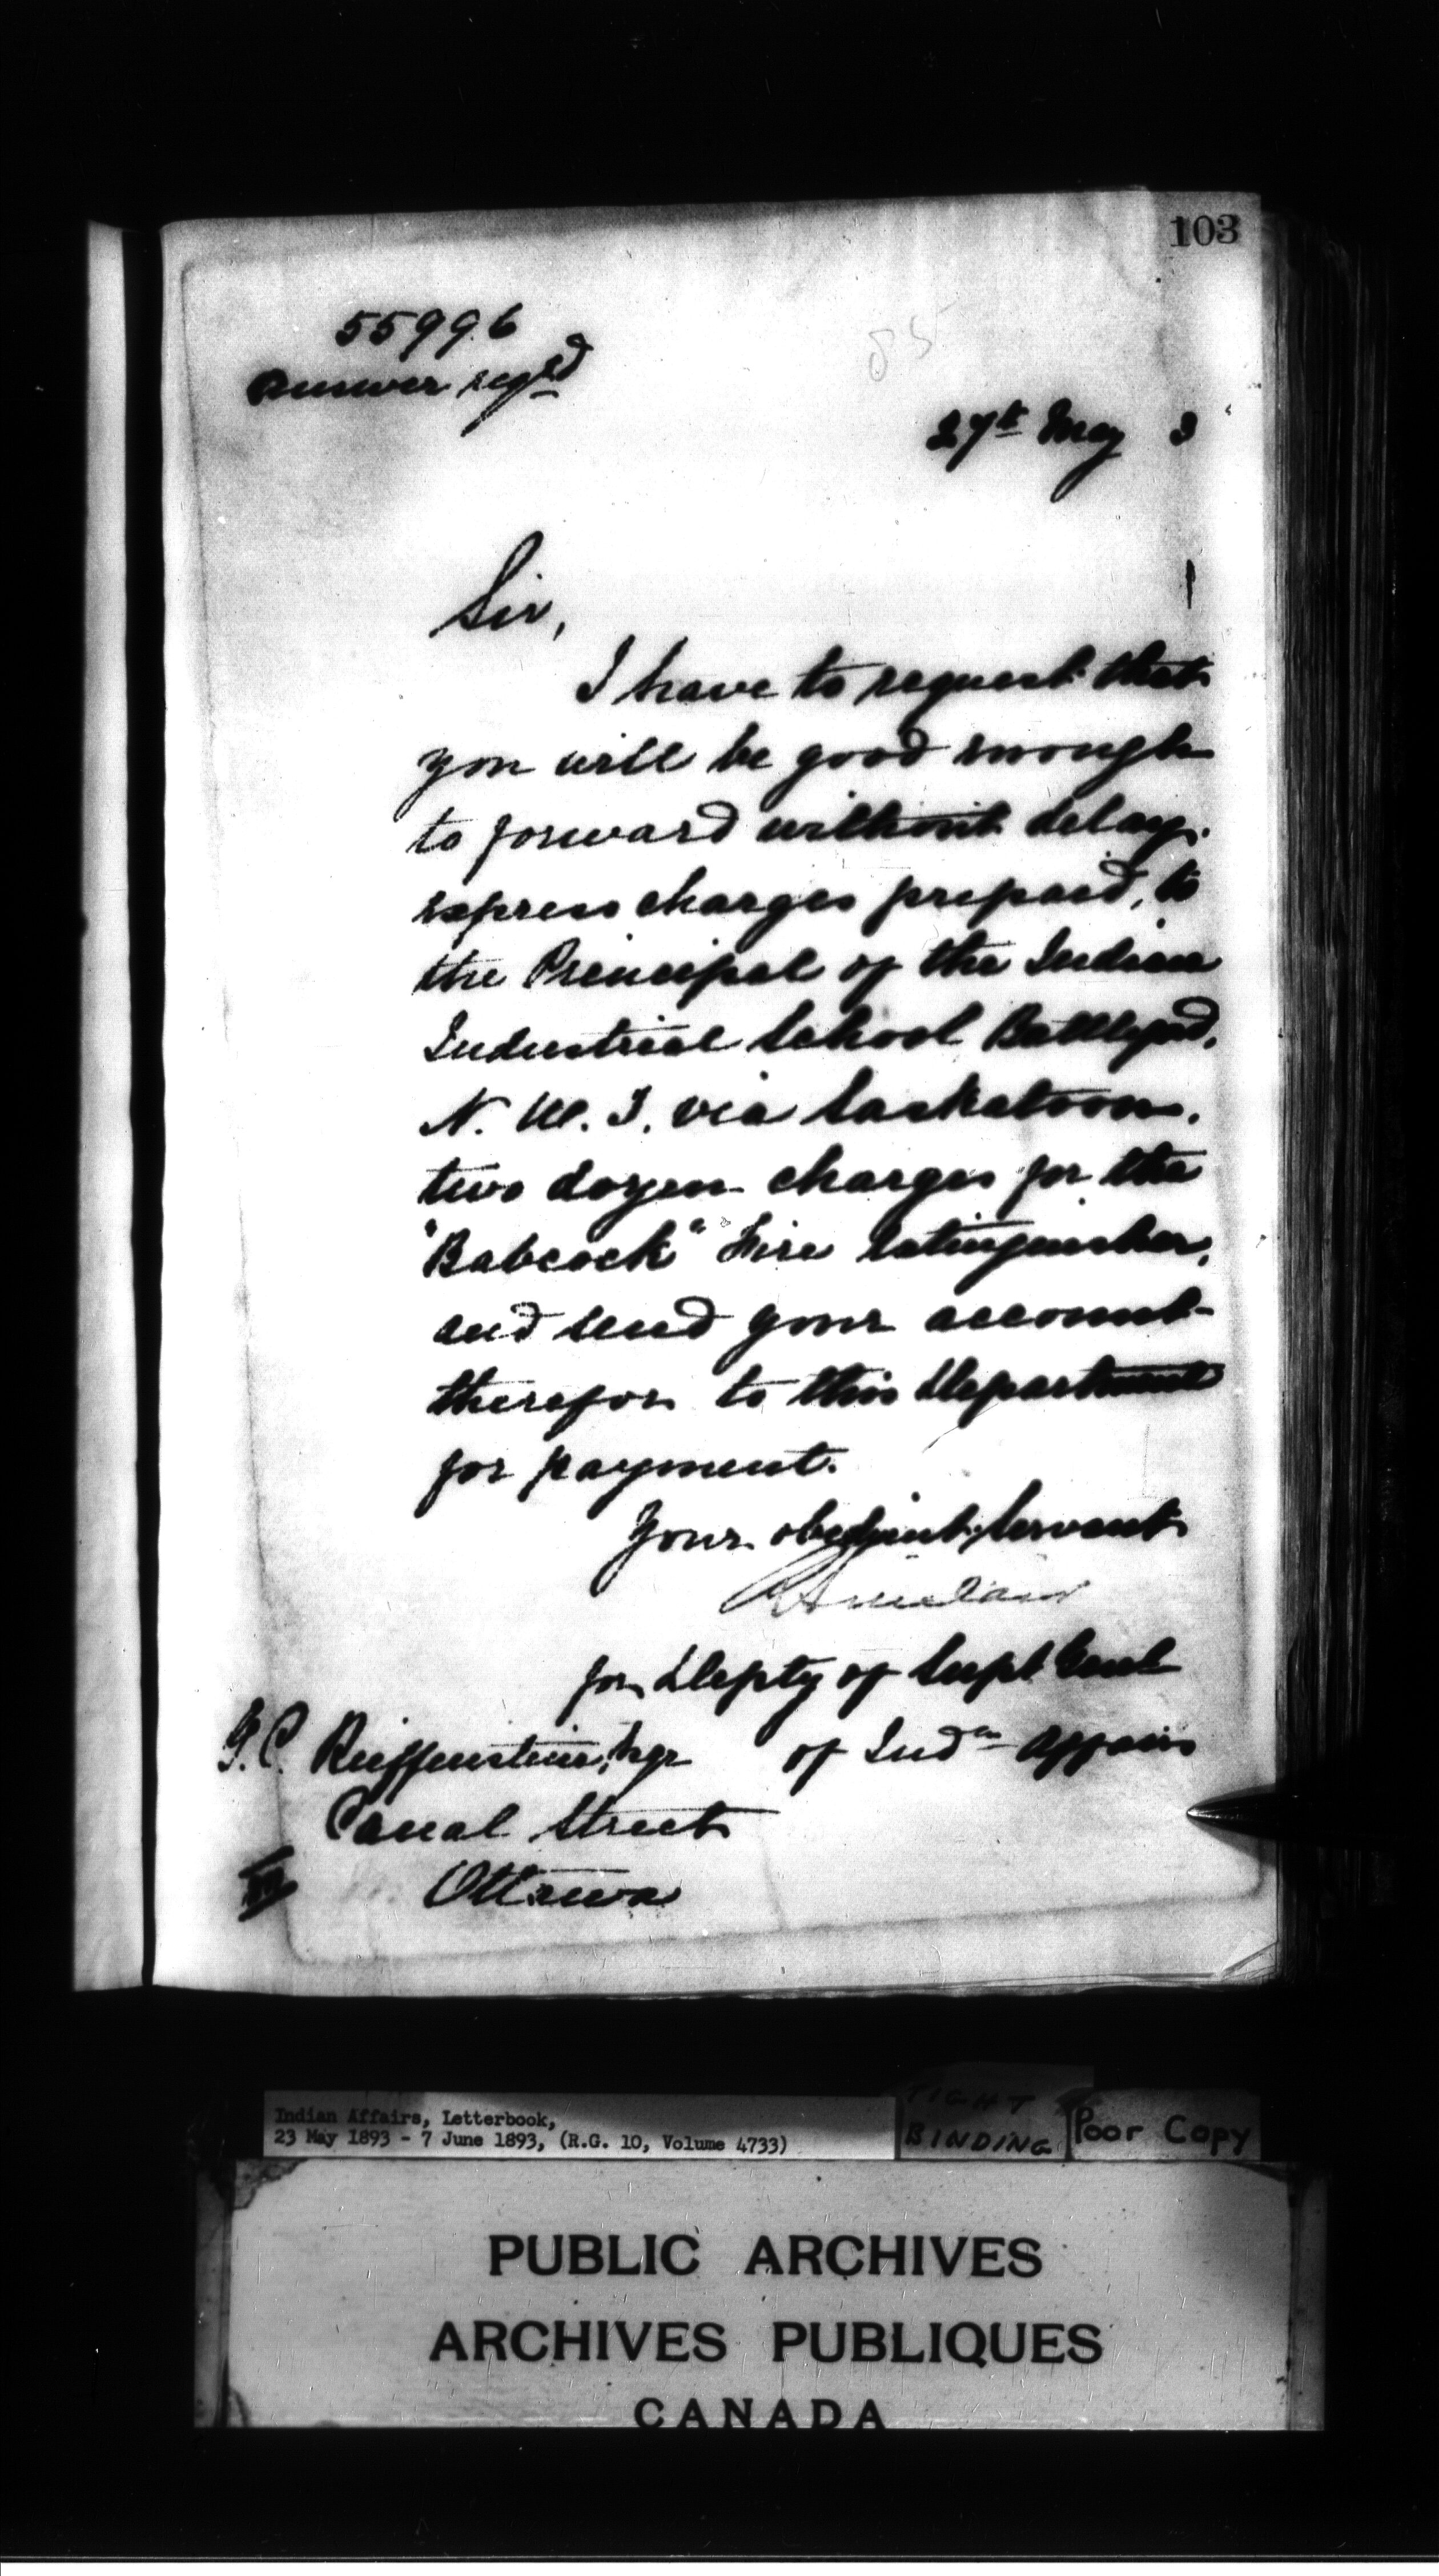 103
55996
Answer reqrd
85
27th May 3
Sir,
I have to request that
you will be good enough
to forward without delay.
express charges prepaid, to
the Principal of the Indian
Industrial School Battleford,
N. W. T. via Saskatoon.
two dozen charges for the
"Babcock" Fire Extinguisher,
and send your account
therefor to this Department
for payment.
Your obedient, servant
for Depty of Supt Genl
of Indn Affairs
Reiffenstein, Esqr
Canal Street
Ottawa
Indian Affairs, Letterbook,
23 May 1893 - 7 June 1893, (R.G. 10, Volume 4733)
TIGHT
BINDING
Poor Copy
PUBLIC ARCHIVES
ARCHIVES PUBLIQUES
CANADA